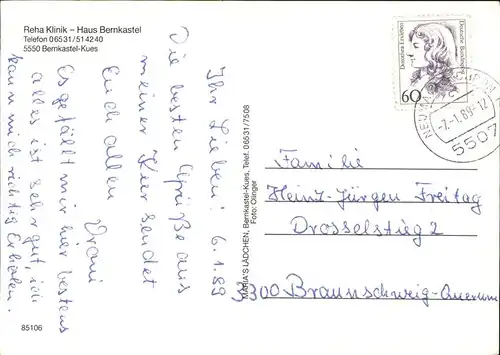 Reha Klinik – Haus Bernkastel
Telefon 06531/514240
5550 Bernkastel-Kues
Ihr Lieben! 6.1.89
Die besten Grüße aus
meiner Kur sendet
Euch allen
Omi
Es gefällt mir hier bestens
alles ist sehr gut, ich
kann mich richtig Erholen.
85106
MARIA'S LÄDCHEN, Bernkastel-Kues, Telef. 06531/7508
Foto: Olinger
Dorothea Erxleben
Deutsche Bundespost
60
-7.-1.89-12
5507
Familie
Heinz-Jürgen Freitag
Drosselstieg 2
3300 Braunschweig-Querum